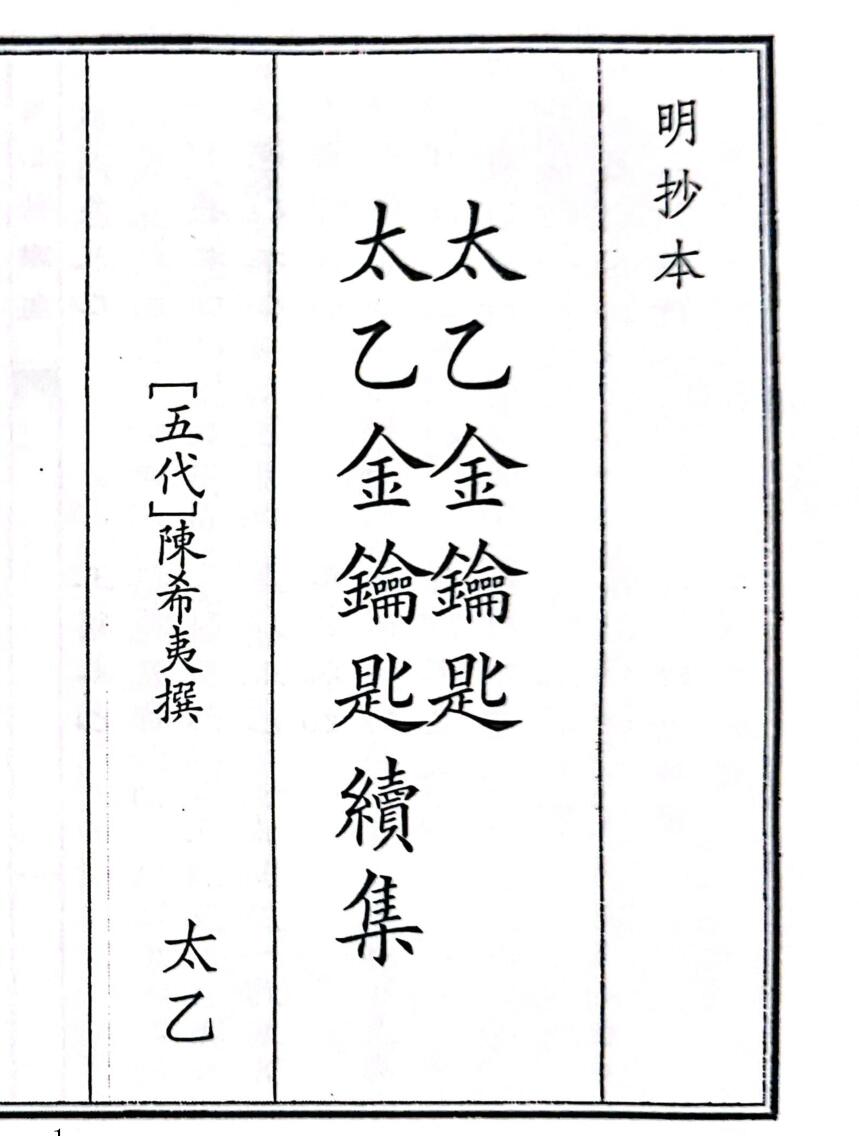 明抄本
太乙金鑰匙
太乙金鑰匙續集
[五代]陳希夷撰
太乙
1